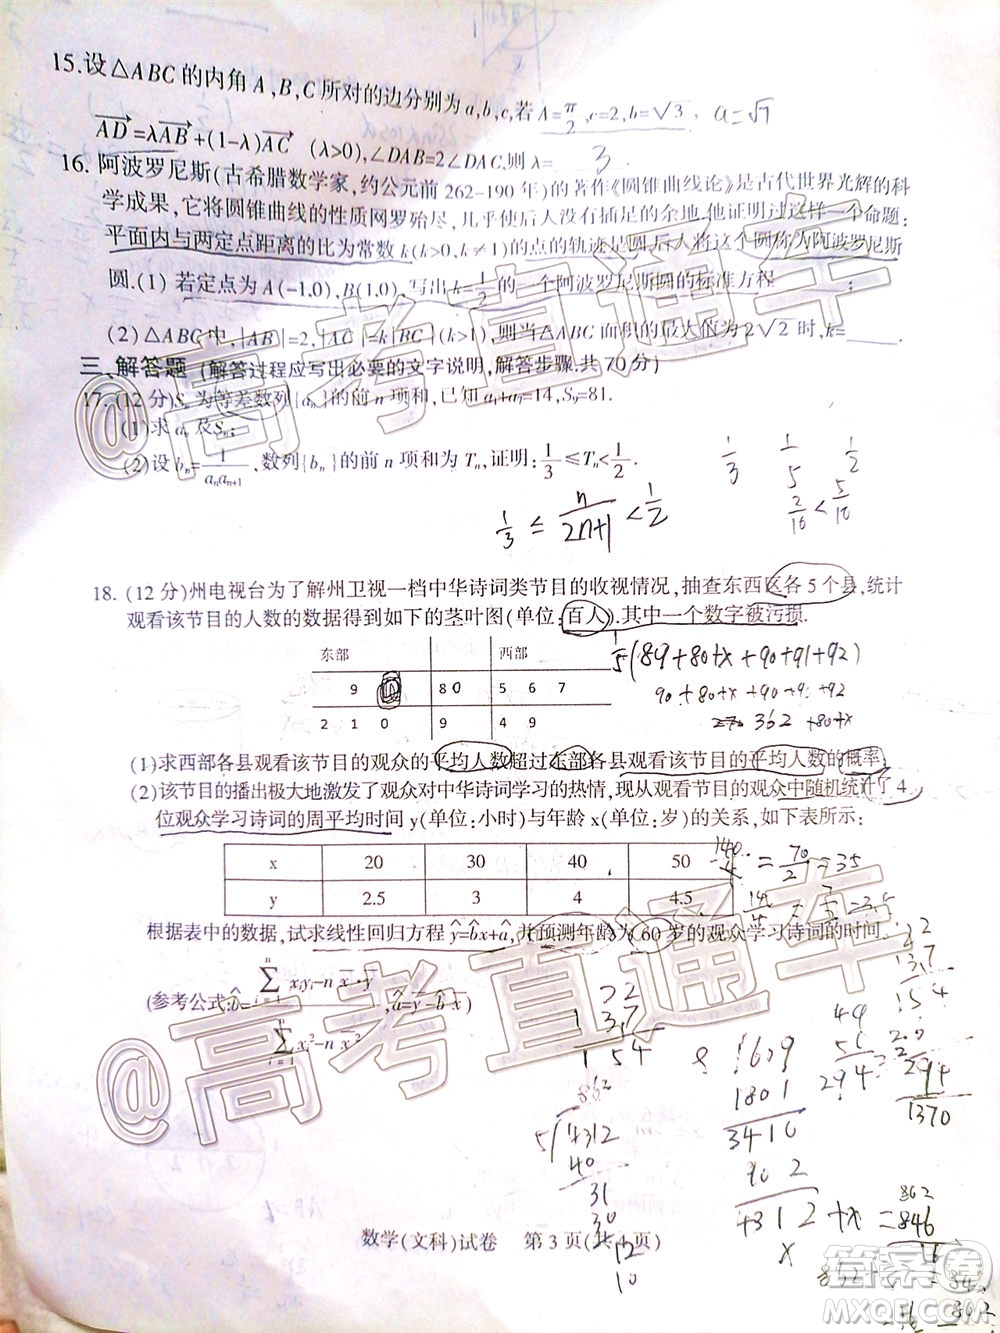 15.设△ABC的内角A,B,C所对的边分别为a,b,c,若A=π/2,c=2,b=√3, a=√7
AD=λAB+(1-λ)AC (λ>0),∠DAB=2∠DAC,则λ= 3 .
16.阿波罗尼斯(古希腊数学家,约公元前262-190年)的著作《圆锥曲线论》是古代世界光辉的科
学成果,它将圆锥曲线的性质网罗殆尽,几乎使后人没有插足的余地,他证明过这样一个命题:
平面内与两定点距离的比为常数k(k>0,k≠1)的点的轨迹是圆,后人将这个圆称为阿波罗尼斯
圆.(1)若定点为A(-1,0),B(1,0),写出k=1/2的一个阿波罗尼斯圆的标准方程 ;
(2)△ABC中,|AB|=2,|AC|=k|BC|(k>1),则当△ABC面积的最大值为2√2时,k=
三、解答题(解答过程应写出必要的文字说明,解答步骤.共70分)
17.(12分)Sn为等差数列{an}的前n项和,已知a1+a7=14,S9=81.
(1)求an及Sn;
(2)设bn=1/(anan+1),数列{bn}的前n项和为Tn,证明:1/3≤Tn<1/2.
1/3 1/5 1/2
1/3 ≤ n/(2n+1) < 1/2
2/10 < 5/10
18.(12分)州电视台为了解州卫视一档中华诗词类节目的收视情况,抽查东西区各5个县,统计
观看该节目的人数的数据得到如下的茎叶图(单位:百人).其中一个数字被污损.
东部 西部
9 8 0 5 6 7
2 1 0 9 4 9
1/5(89+80+x+90+91+92)
90+80+x+90+92
362 +80+x
(1)求西部各县观看该节目的观众的平均人数超过东部各县观看该节目的平均人数的概率;
(2)该节目的播出极大地激发了观众对中华诗词学习的热情,现从观看该节目的观众中随机统计了4
位观众学习诗词的周平均时间y(单位:小时)与年龄x(单位:岁)的关系,如下表所示:
x 20 30 40 50
y 2.5 3 4 4.5
140/4 = 70/2 = 35
根据表中的数据,试求线性回归方程ŷ=b̂x+â,并预测年龄为60岁的观众学习诗词的时间.
(参考公式:b̂=(∑xiyi-nx̄·ȳ)/(∑xi²-nx̄²),â=ȳ-b̂x̄)
154
294
1370
1609
1801
3410
902
4312
862
5 4312
40
31
30
12
10
+x =
846
16
数学(文科)试卷 第3页(共4页)
答案圈
MXQE.COM
@高考直通车
@高考直通车